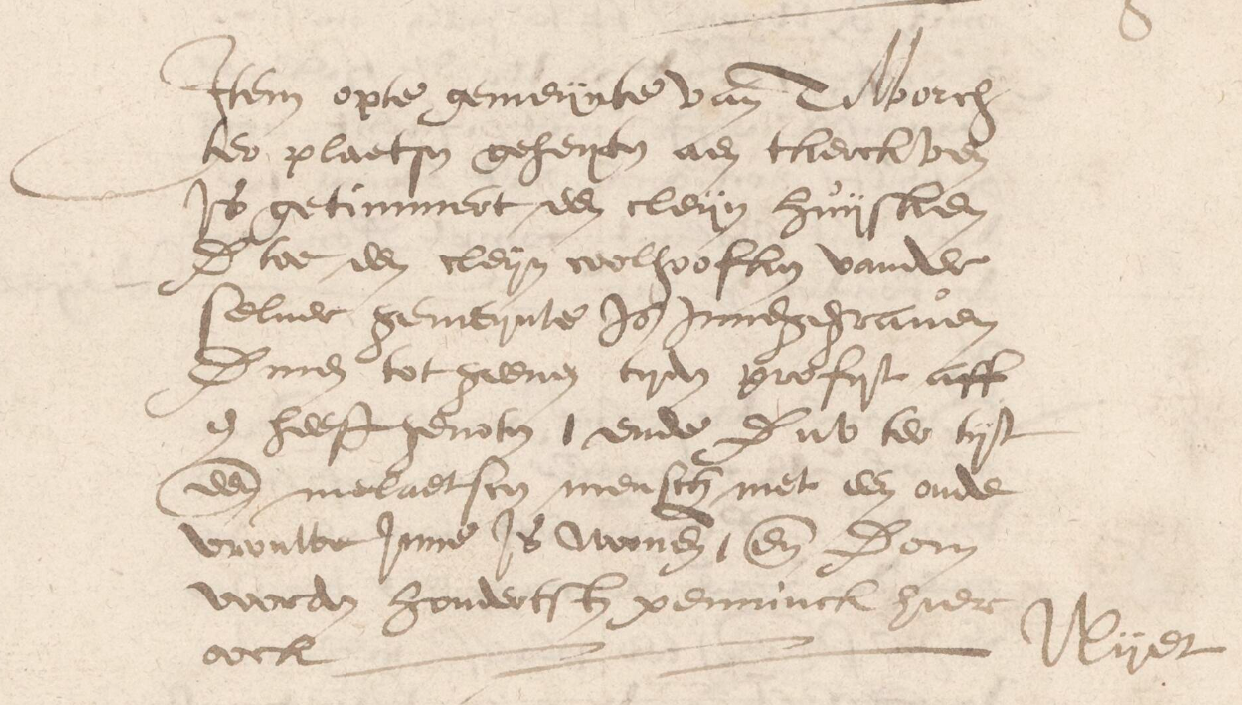 Item opte gemeijnte van Tilborch
ter plaetsn geheyten aen tkerckven
Is getimmert een cleijn huijsken
Dwe een cleijn coelhoofkn vander
selver gemeijnte Is Innegegraven
Dmen tot geenen tyden profijt aff
en heeft genotn / ende Dwer ter tijt
een melaetscn mensch met een oude
vrouwe Inne Is woenen / en Dom
voerdn hondertsten penninck hier
oock Nyet